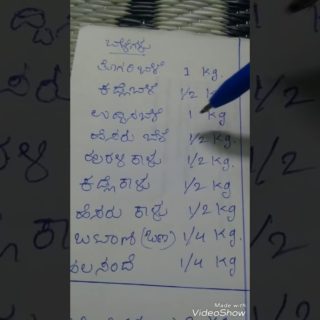 ಬೇಳೆಗಳು
ತೊಗರಿಬೇಳೆ 1 Kg.
ಕಡ್ಲೆಬೇಳೆ 1/2 K
ಉದ್ದಿನಬೇಳೆ 1 Kg
ಹೆಸರು ಬೇಳೆ 1/2 Kg.
ಕಾಳು 1/2 Kg.
ಕಡ್ಲೆಕಾಳು 1/2 Kg
ಹೆಸರು ಕಾಳು 1/2 Kg
ಬಟಾಣಿ 1/4 Kg.
ಅಲಸಂದೆ 1/4 Kg
Made with
VideoShow